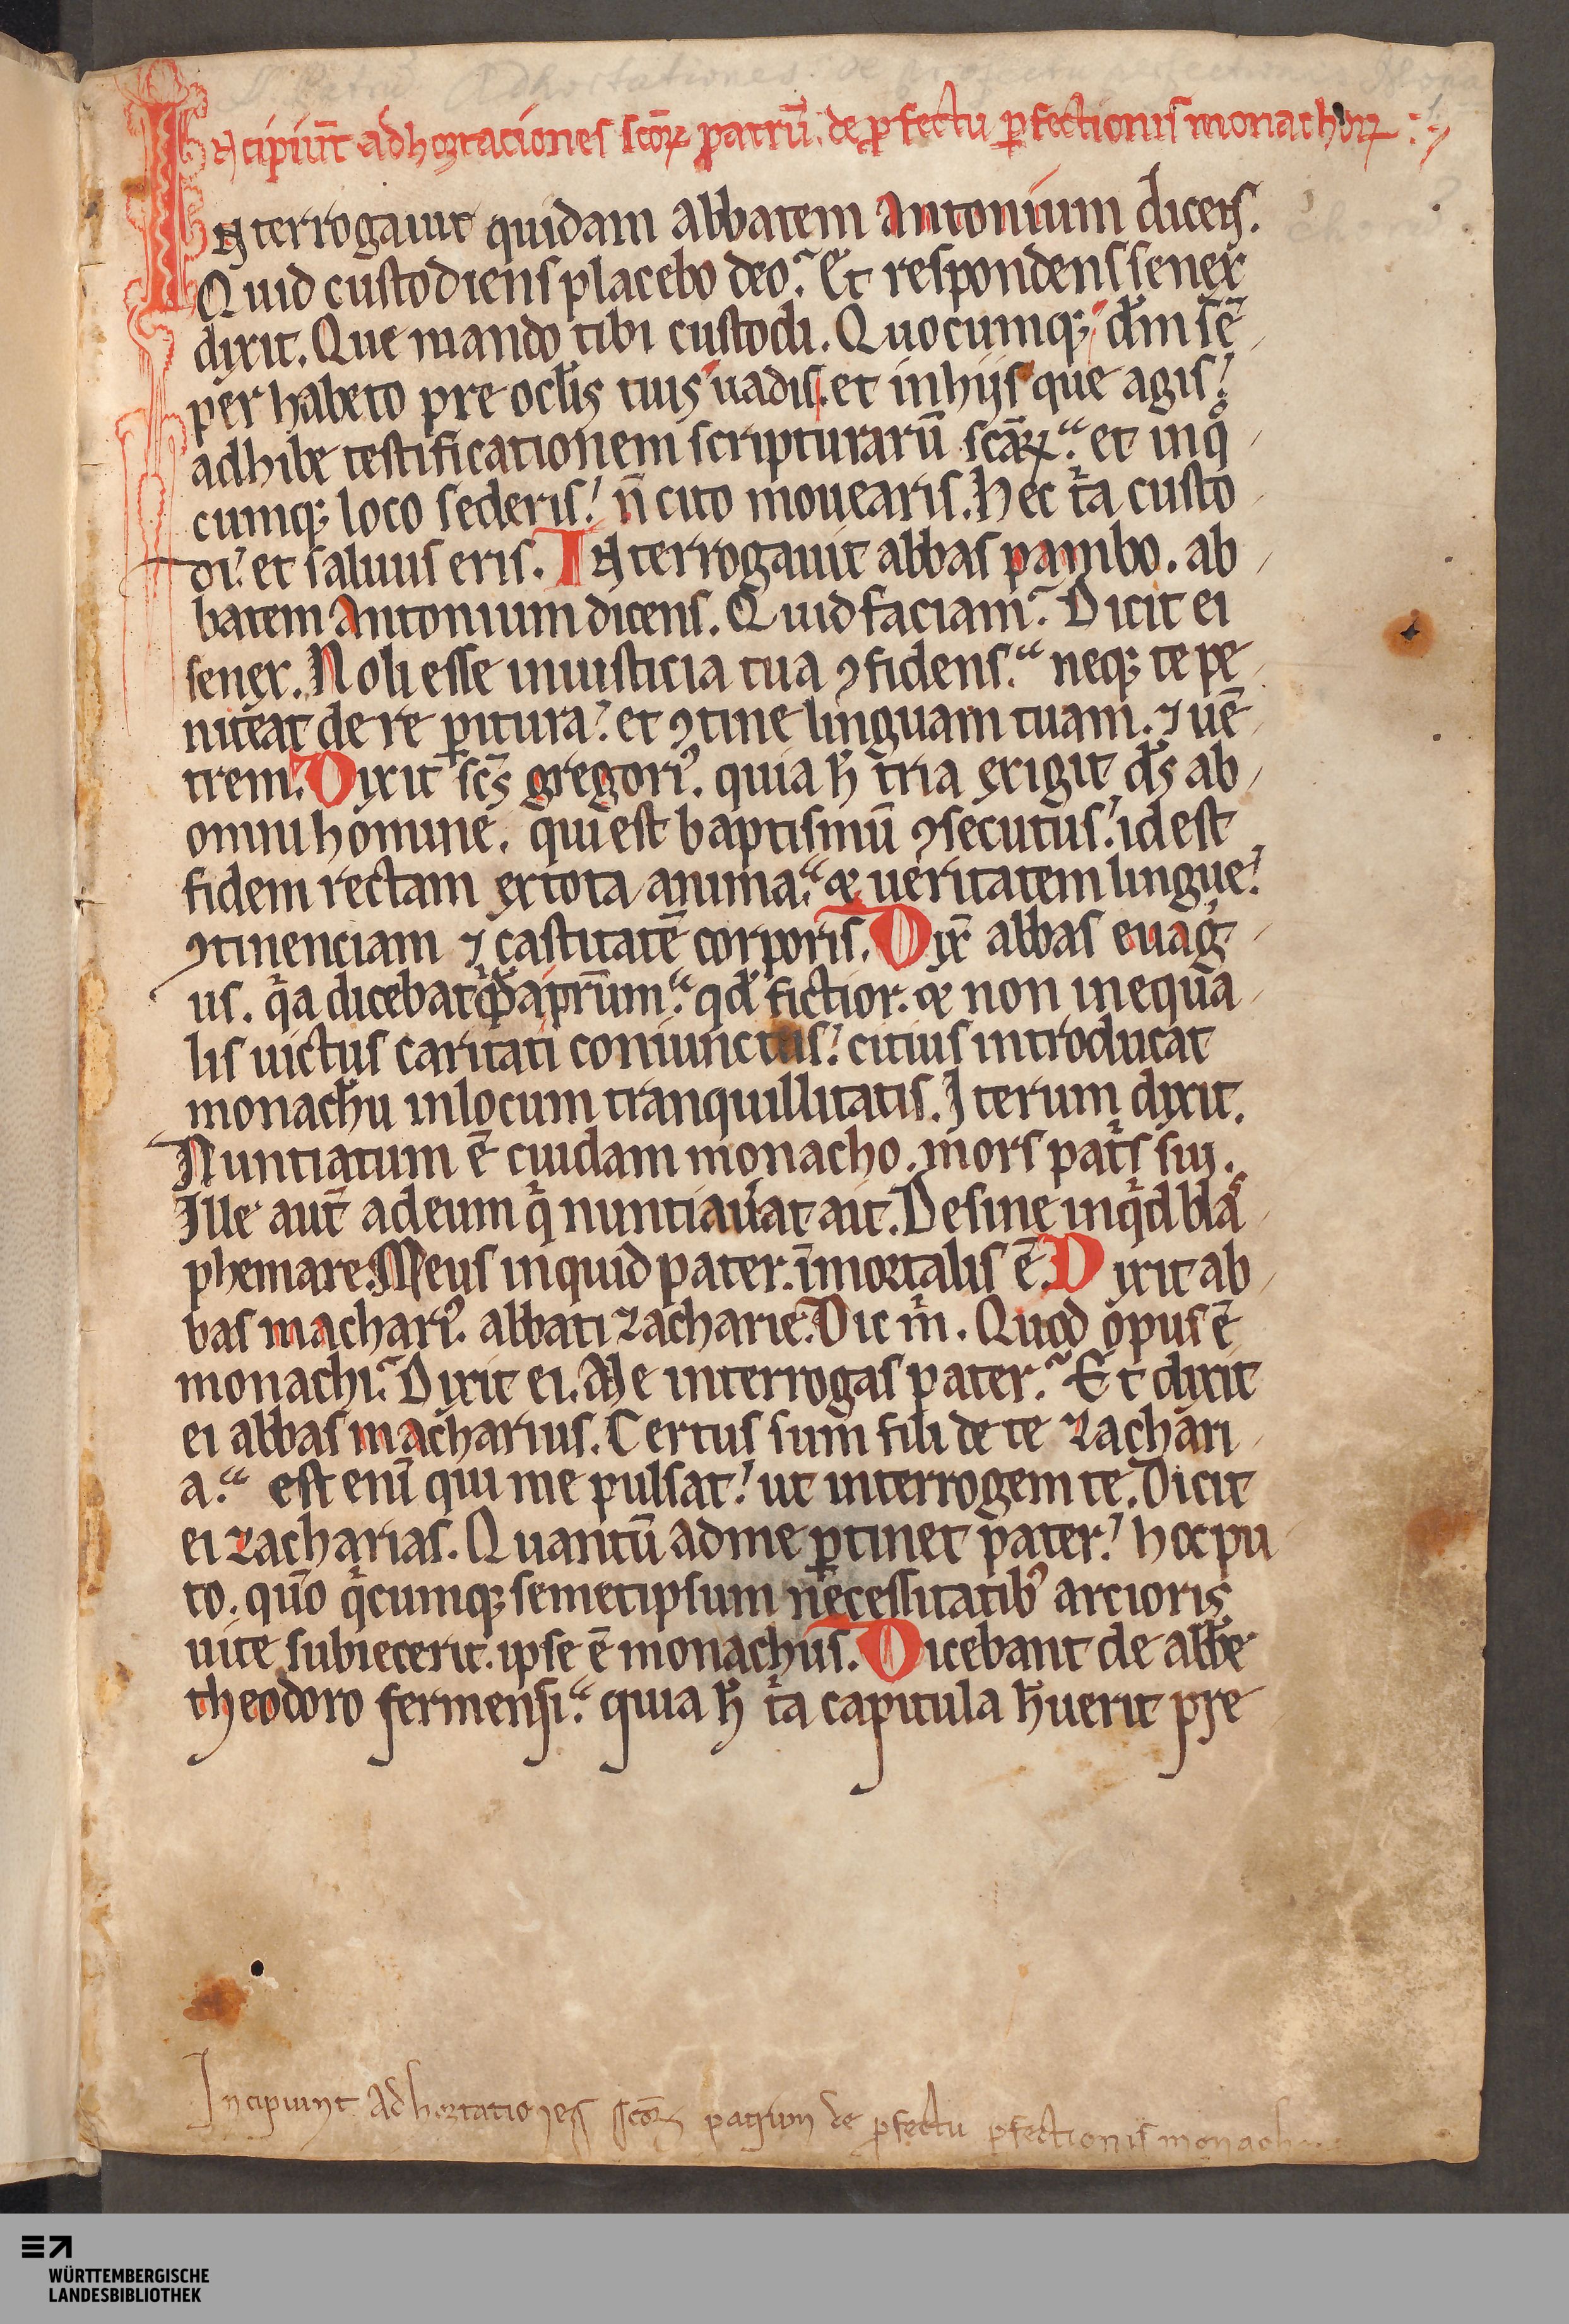 Incipiūt adhortaciones scōꝝ patrū. de ꝓfectu ꝑfectionis monachoꝝ
Interrogauit quidam abbatem antonium dicēs.
Quid custodiens placebo deo? Et respondens senex
dixit. Que mando tibi custodi. Quocumqꝫ dm̄ sē
per habeto pre ocl̄is tuis uadis. et in hijs que agis!
adhibe testificationem scripturarū scāꝝ. et in qͦ
cumqꝫ loco sederis! n̄ cito mouearis. Hec tͥa custo
di. et saluus eris. Interrogauit abbas pambo. ab
batem antonium dicens. Quid faciam? Dicit ei
senex. Noli esse iniusticia tua ꝯfidens. neqꝫ te pe
niteat de re ꝑitura. et ꝯtine linguam tuam. ⁊ uē
trem. Dixit scs̄ gregoriꝰ. quia h̄ tria exigit ds̄ ab
omni homine. qui est baptismū ꝯsecutus! id est
fidem rectam ex tota anima. et ueritatem lingue!
ꝯtinenciam ⁊ castitatē corporis. Dix̄ abbas euag
us. qͥa dicebat patrum. qd̄ fictior. et non inequa
lis uictus caritati coniunctus! citius introducat
monachū in locum tranquillitatis. Iterum dixit.
Nuntiatum ē cuidam monacho. mors patͥs sui.
Ille aut̄ ad eum qͥ nuntiau̓at ait. Desine inqͥd blas
phemare. Meus inquid pater. īmortalis ē. Dixit ab
bas machariꝰ. abbati zacharie. Dic mͥ. Quod opus ē
monachi? Dixit ei. Me interrogas pater? Et dixit
ei abbas macharius. Certus sum fili de te zachari
a. est enī qui me pulsat! ut interrogem te. Dicit
ei zacharias. Quantū ad me ꝑtinet pater! hoc pu
to. quo qͥcumqꝫ semetipsum necessitatibꝰ arcioris
uite subiecerit. ipse ē monachus. Dicebant de abbe
theodoro fermensi. quia h̄ tͥa capitula h̄uerit pre
Incipiunt Adhortationes scōꝝ patrum de ꝓfectu ꝑfectionis
WÜRTTEMBERGISCHE
LANDESBIBLIOTHEK